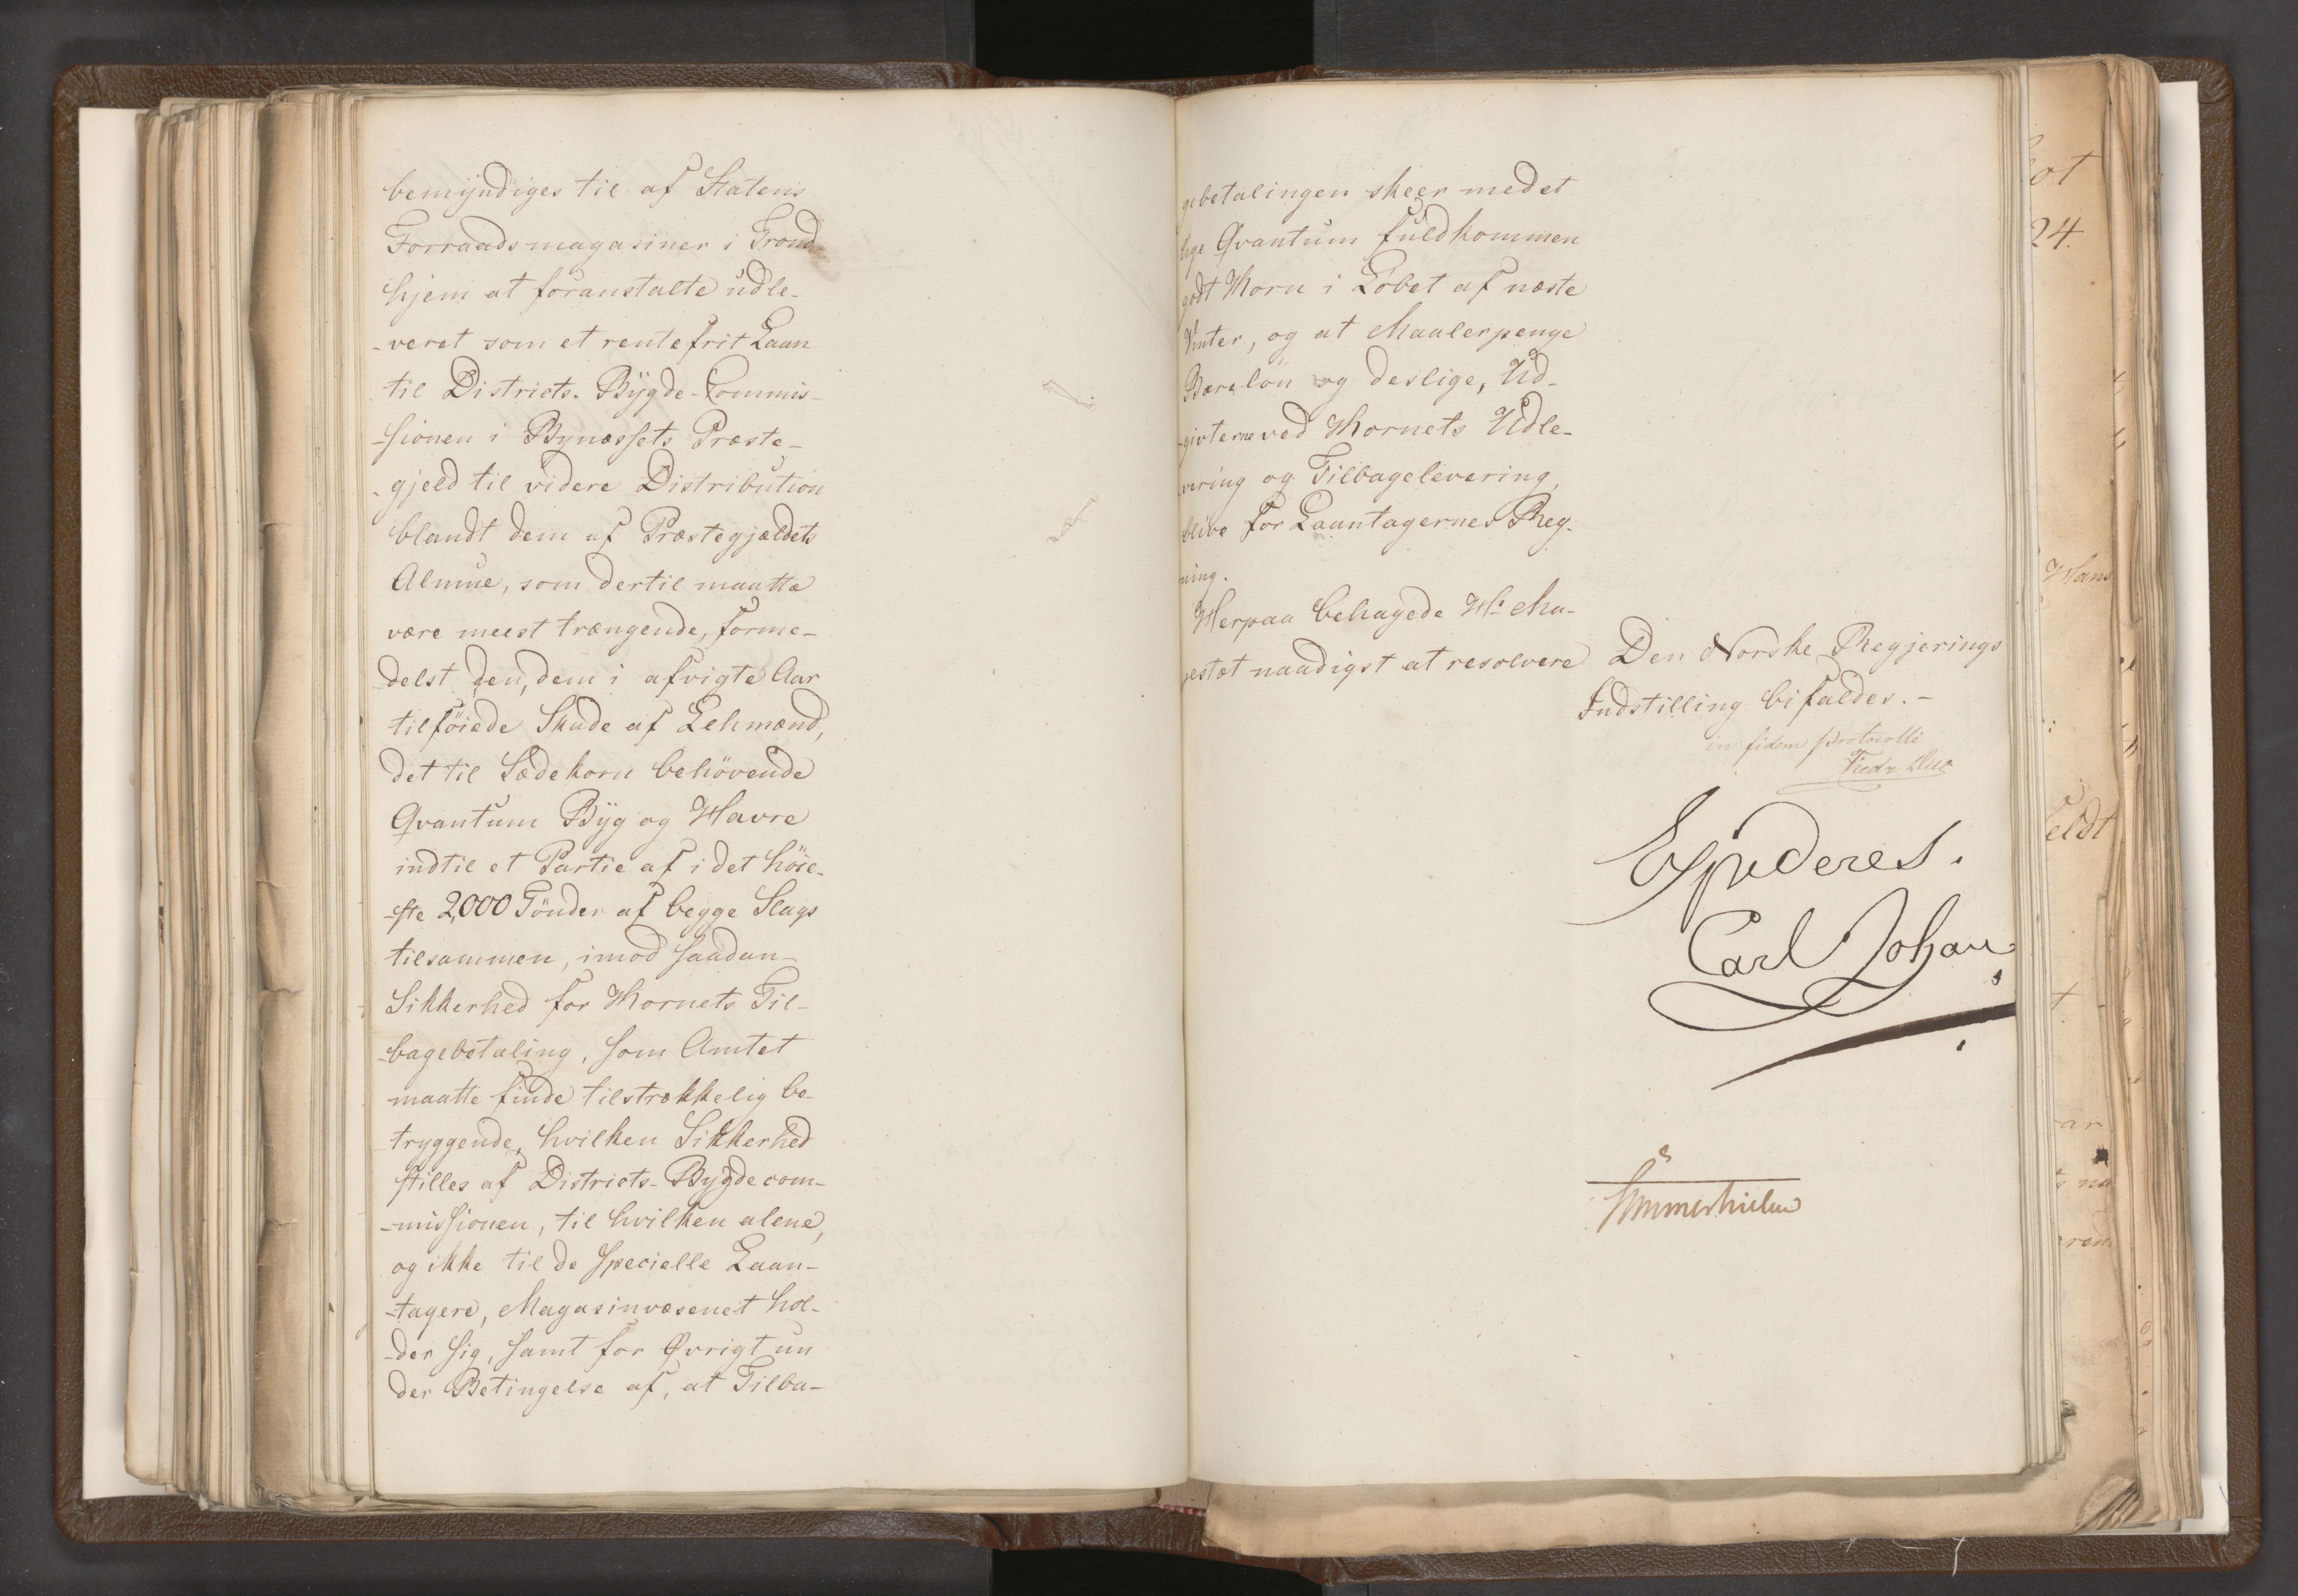 bemÿndiges til af Statens
Forraadsmagasiner i Trond-
hjem at foranstalte udle-
-veret som et rentefrit Laan
til Districts-Bÿgde-Commis-
-sionen i Bynæssets Præste-
-gjeld til videre Distribution
blandt dem af Præstegjældets
Almue, som dertil maatte
være meest trængende, forme-
-delst den, dem i afvigte Aar
tilföiede Skade af Lehmænd,
det til Sædekorn behövende
Qvantum Bÿg og Havre
indtil et Partie af i det höie-
-ste 2,000 Tönder af begge Slags
tilsammen, imod saadan
Sikkerhed for Kornets Til-
-bagebetaling, som Amtet
maatte finde tilstrækkelig be-
-tryggende, hvilken Sikkerhed
stilles af Districts-Bygdecom-
-missionen, til hvilken alene,
og ikke til de specielle Laan-
-tagere, Magasinvæsenet hol-
-der sig, samt for Øvrigt un
der Betingelse af, at Tilba-
gebetalingen skeer med et
lige Qvantum fuldkommen
godt Korn i Löbet af næste
Vinter, og at Maalerpenge
Bærelön og deslige, Ud-
-givterne ved Kornets Udle-
-vering og Tilbagelevering,
blive for Laantagernes Reg-
ning.
Herpaa behagede Hs Ma-
jestæt naadigst at resolvere
Den Norske Regjerings
Indstilling bifaldes.-
in fidem protocolli
Fredr Due
Expideres.
Carl Johan
ot
24.
Hans
eldt
ar